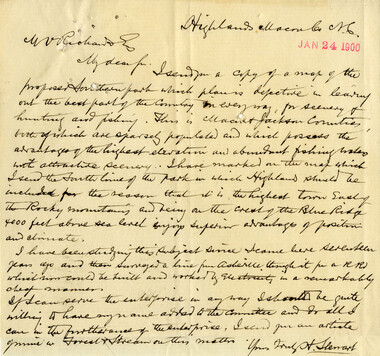 Highlands, Macon Co N.C.
JAN 24 1900
M V Richards Esq
My dear Sir I send you a copy of a map of the
proposed Southern park which plan is defective in leaving
out the best part of the Country in every way, for scenery &
hunting and fishing. This is Macon & Jackson Counties
both of which are sparsely populated and which possess the
advantages of the highest elevation and abundant fishing waters
most attractive scenery. I have marked on the map which
I send the South line of the park in which Highland should be
included for the reason that it is the highest town East of
the Rocky mountains and being on the crest of the Blue Ridge
4000 feet above sea level enjoys superior advantages of position
and climate.
I have been studying this subject since I came here seventeen
years ago and then surveyed a line for a R RD
which now could be built and worked by in a remarkably
cheap manner.
If I can serve the enterprise in any way I should be quite
willing to have my name added to the Committee and do all I
can in the furtherance of the enterprise, I send you an article
of mine in Forest & Stream on this matter Yours truly H. Stewart